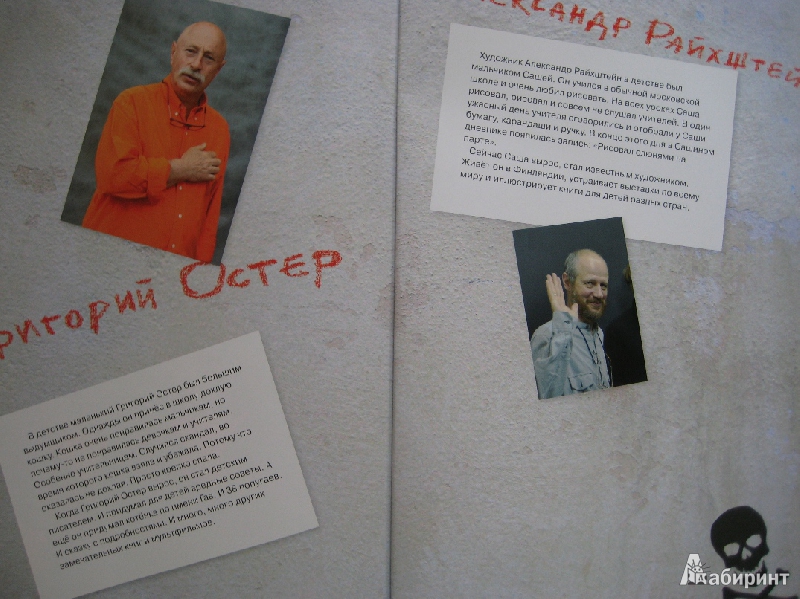 Григорий Остер
В детстве маленький Григорий Остер был большим
выдумщиком. Однажды он принёс в школу дохлую
кошку. Кошка очень понравилась мальчикам, но
почему-то не понравилась девочкам и учителям.
Особенно учительницам. Случился скандал, во
время которого кошка взяла и убежала. Потому что
оказалась не дохлая. Просто крепко спала.
Когда Григорий Остер вырос, он стал детским
писателем. И придумал для детей вредные советы. А
ещё он придумал котёнка по имени Гав. И 38 попугаев.
И сказку с подробностями. И много, много других
замечательных книг и мультфильмов.
лександр Райхштей
Художник Александр Райхштейн в детстве был
мальчиком Сашей. Он учился в обычной московской
школе и очень любил рисовать. На всех уроках Саша
рисовал, рисовал и совсем не слушал учителей. В один
ужасный день учителя сговорились и отобрали у Саши
бумагу, карандаши и ручку. В конце этого дня в Сашином
дневнике появилась запись: «Рисовал слюнями на
парте».
Сейчас Саша вырос, стал известным художником.
Живёт он в Финляндии, устраивает выставки по всему
миру и иллюстрирует книги для детей разных стран.
Лабиринт